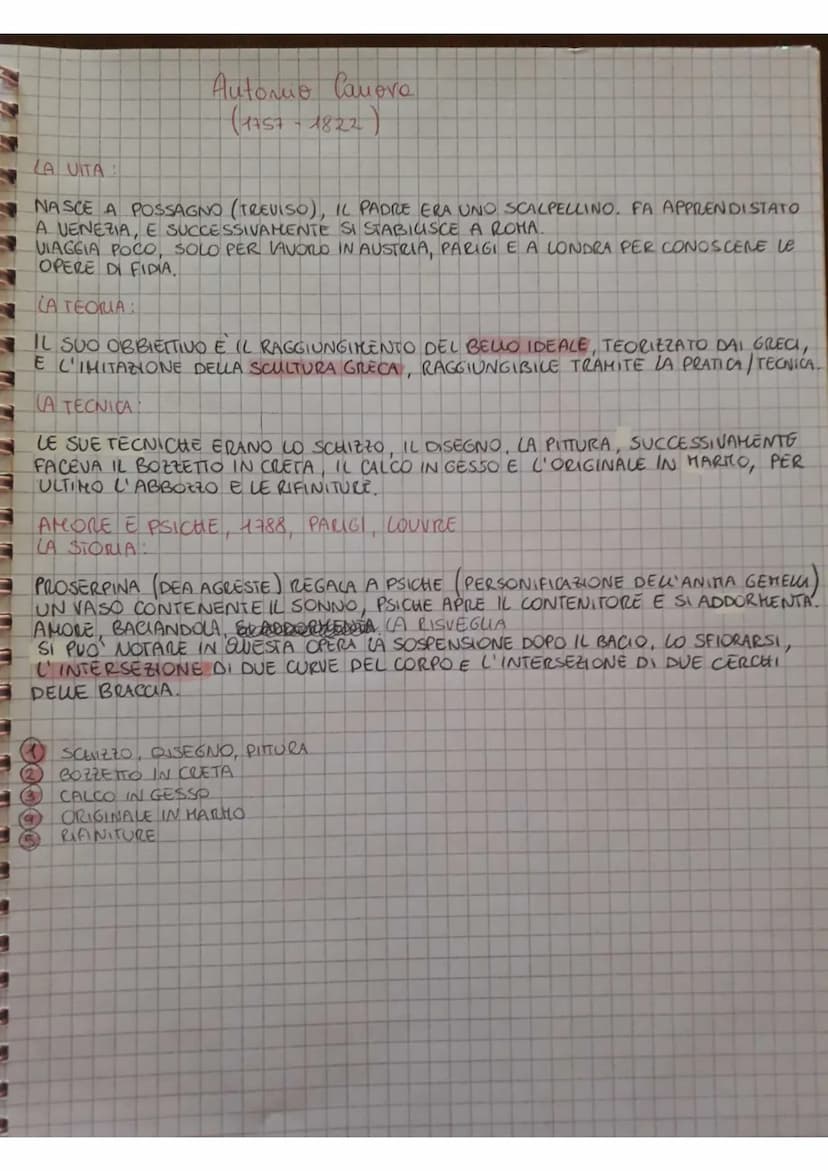 Antonio Canova
(1757 - 1822)
LA VITA:
NASCE A POSSAGNO (TREVISO), IL PADRE ERA UNO SCALPELLINO. FA APPRENDISTATO
A VENEZIA, E SUCCESSIVAMENTE SI STABILISCE A ROMA.
VIAGGIA POCO, SOLO PER LAVORO IN AUSTRIA, PARIGI E A LONDRA PER CONOSCERE LE
OPERE DI FIDIA.
LA TEORIA:
IL SUO OBBIETTIVO E' IL RAGGIUNGIMENTO DEL BELLO IDEALE, TEORIZZATO DAI GRECI,
E L'IMITAZIONE DELLA SCULTURA GRECA, RAGGIUNGIBILE TRAMITE LA PRATICA/TECNICA.
LA TECNICA:
LE SUE TECNICHE ERANO LO SCHIZZO, IL DISEGNO, LA PITTURA, SUCCESSIVAMENTE
FACEVA IL BOZZETTO IN CRETA, IL CALCO IN GESSO E L'ORIGINALE IN MARMO, PER
ULTIMO L'ABBOZZO E LE RIFINITURE.
AMORE E PSICHE, 1788, PARIGI, LOUVRE
LA STORIA:
PROSERPINA (DEA AGRESTE) REGALA A PSICHE (PERSONIFICAZIONE DELL'ANIMA GEMELLA)
UN VASO CONTENENTE IL SONNO, PSICHE APRE IL CONTENITORE E SI ADDORMENTA.
AMORE, BACIANDOLA, LA RISVEGLIA
SI PUO' NOTARE IN QUESTA OPERA LA SOSPENSIONE DOPO IL BACIO, LO SFIORARSI,
L'INTERSEZIONE DI DUE CURVE DEL CORPO E L'INTERSEZIONE DI DUE CERCHI
DELLE BRACCIA.
1 SCHIZZO, DISEGNO, PITTURA
2 BOZZETTO IN CRETA
3 CALCO IN GESSO
4 ORIGINALE IN MARMO
5 RIFINITURE